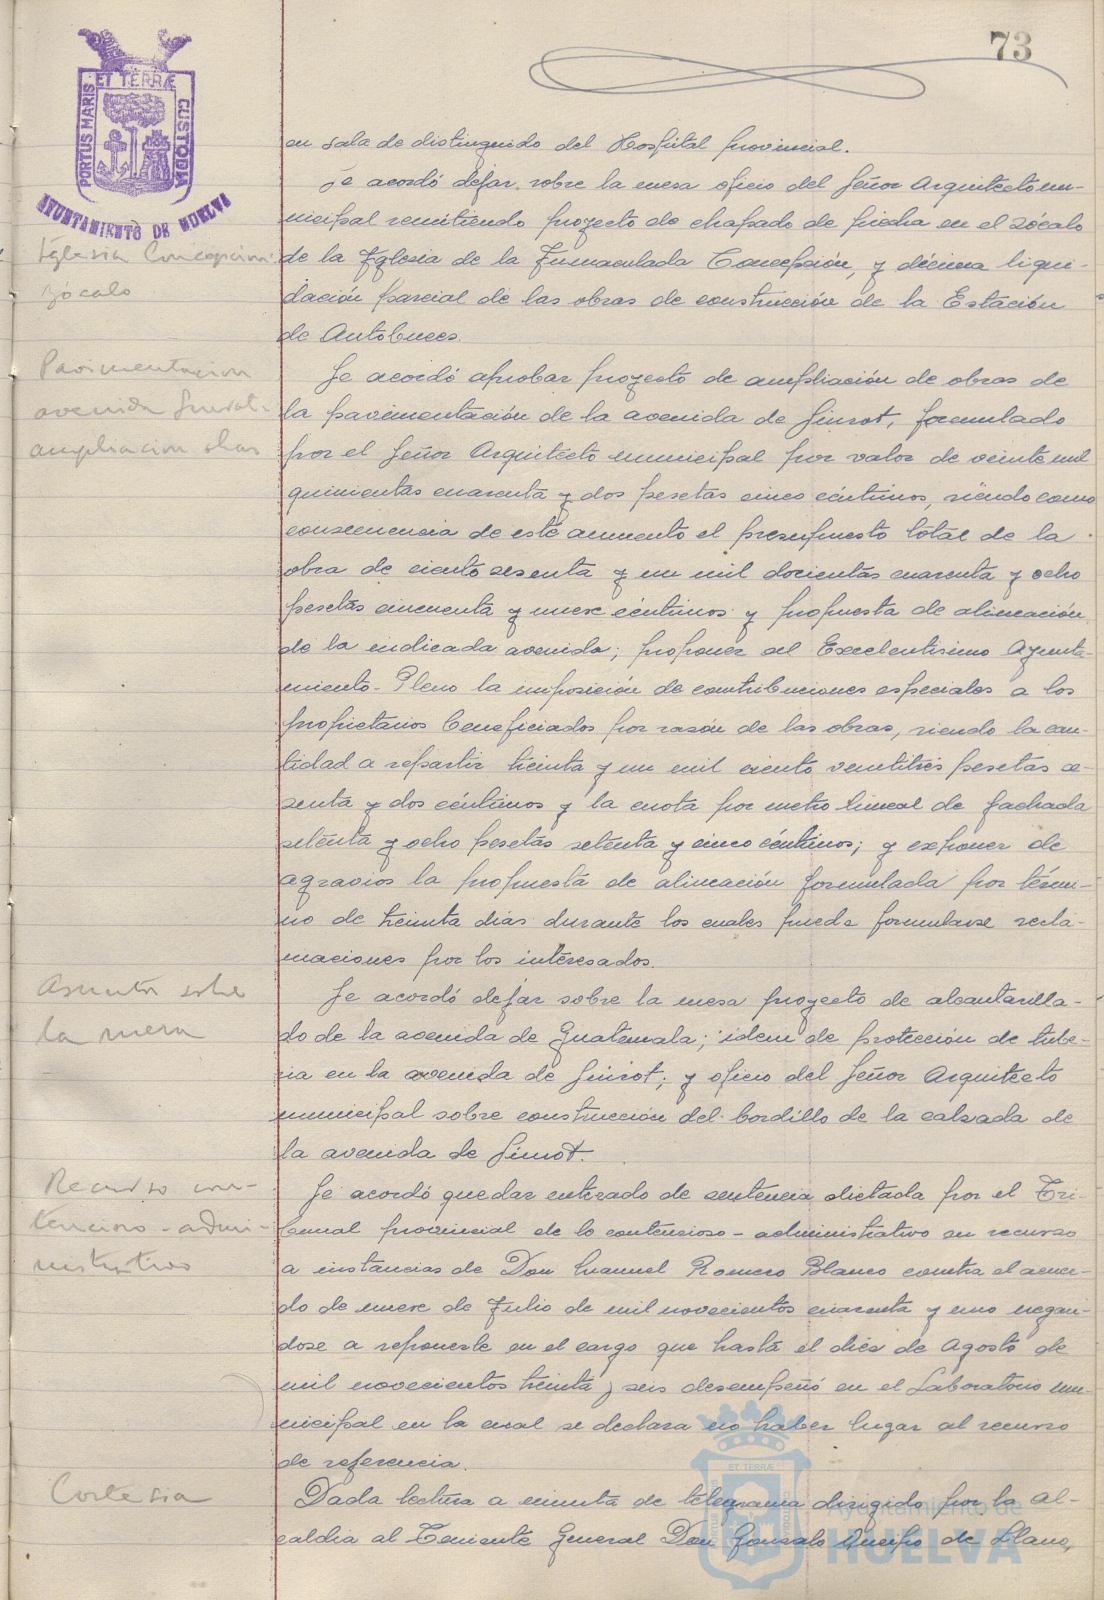 73
PORTUS MARIS ET TERRÆ CUSTODIA
AYUNTAMIENTO DE HUELVA
en sala de distinguido del Hospital provincial.
Se acordó dejar sobre la mesa oficio del Señor Arquitecto mu-
nicipal remitiendo proyecto de chapado de piedra en el zócalo
Iglesia Concepcion
de la Iglesia de la Inmaculada Concepción, y décima liqui-
zócalo
dación parcial de las obras de construcción de la Estación
de Autobuses.
Pavimentacion
Se acordó aprobar proyecto de ampliación de obras de
avenida Guirot.
la pavimentación de la avenida de Guirot, formulado
ampliacion obras
por el Señor Arquitecto municipal por valor de veinte mil
quinientas cuarenta y dos pesetas cinco céntimos, siendo como
consecuencia de este aumento el presupuesto total de la
obra de ciento sesenta y un mil docientas cuarenta y ocho
pesetas cincuenta y nueve céntimos y propuesta de alineación
de la indicada avenida; proponer al Excelentísimo Ayunta-
miento-Pleno la imposición de contribuciones especiales a los
propietarios beneficiados por razón de las obras, siendo la can-
tidad a repartir treinta y un mil ciento veintitrés pesetas se-
senta y dos céntimos y la cuota por metro lineal de fachada
setenta y ocho pesetas setenta y cinco céntimos; y exponer de
agravios la propuesta de alineación formulada por térmi-
no de treinta dias durante los cuales puede formularse recla-
maciones por los interesados.
Asuntos sobre
Se acordó dejar sobre la mesa proyecto de alcantarilla-
la mesa
do de la avenida de Guatemala; idem de protección de tube-
ria en la avenida de Guirot; y oficio del Señor Arquitecto
municipal sobre construcción del bordillo de la calzada de
la avenida de Guirot.
Recurso con-
Se acordó quedar enterado de sentencia dictada por el Tri-
tencioso-admi-
bunal provincial de lo contencioso-administrativo en recurso
nistrativo
a instancias de Don Manuel Romero Blanco contra el acuer-
do de nueve de Julio de mil novecientos cuarenta y uno negan-
dose a reponerle en el cargo que hasta el diez de Agosto de
mil novecientos treinta y seis desempeñó en el Laboratorio mu-
nicipal en la cual se declara no haber lugar al recurso
de referencia.
Cortesia
Dada lectura a minuta de telegrama dirigido por la Al-
caldia al Teniente General Don Gonzalo Queipo de Llano,
ET TERRÆ
Ayuntamiento de
HUELVA